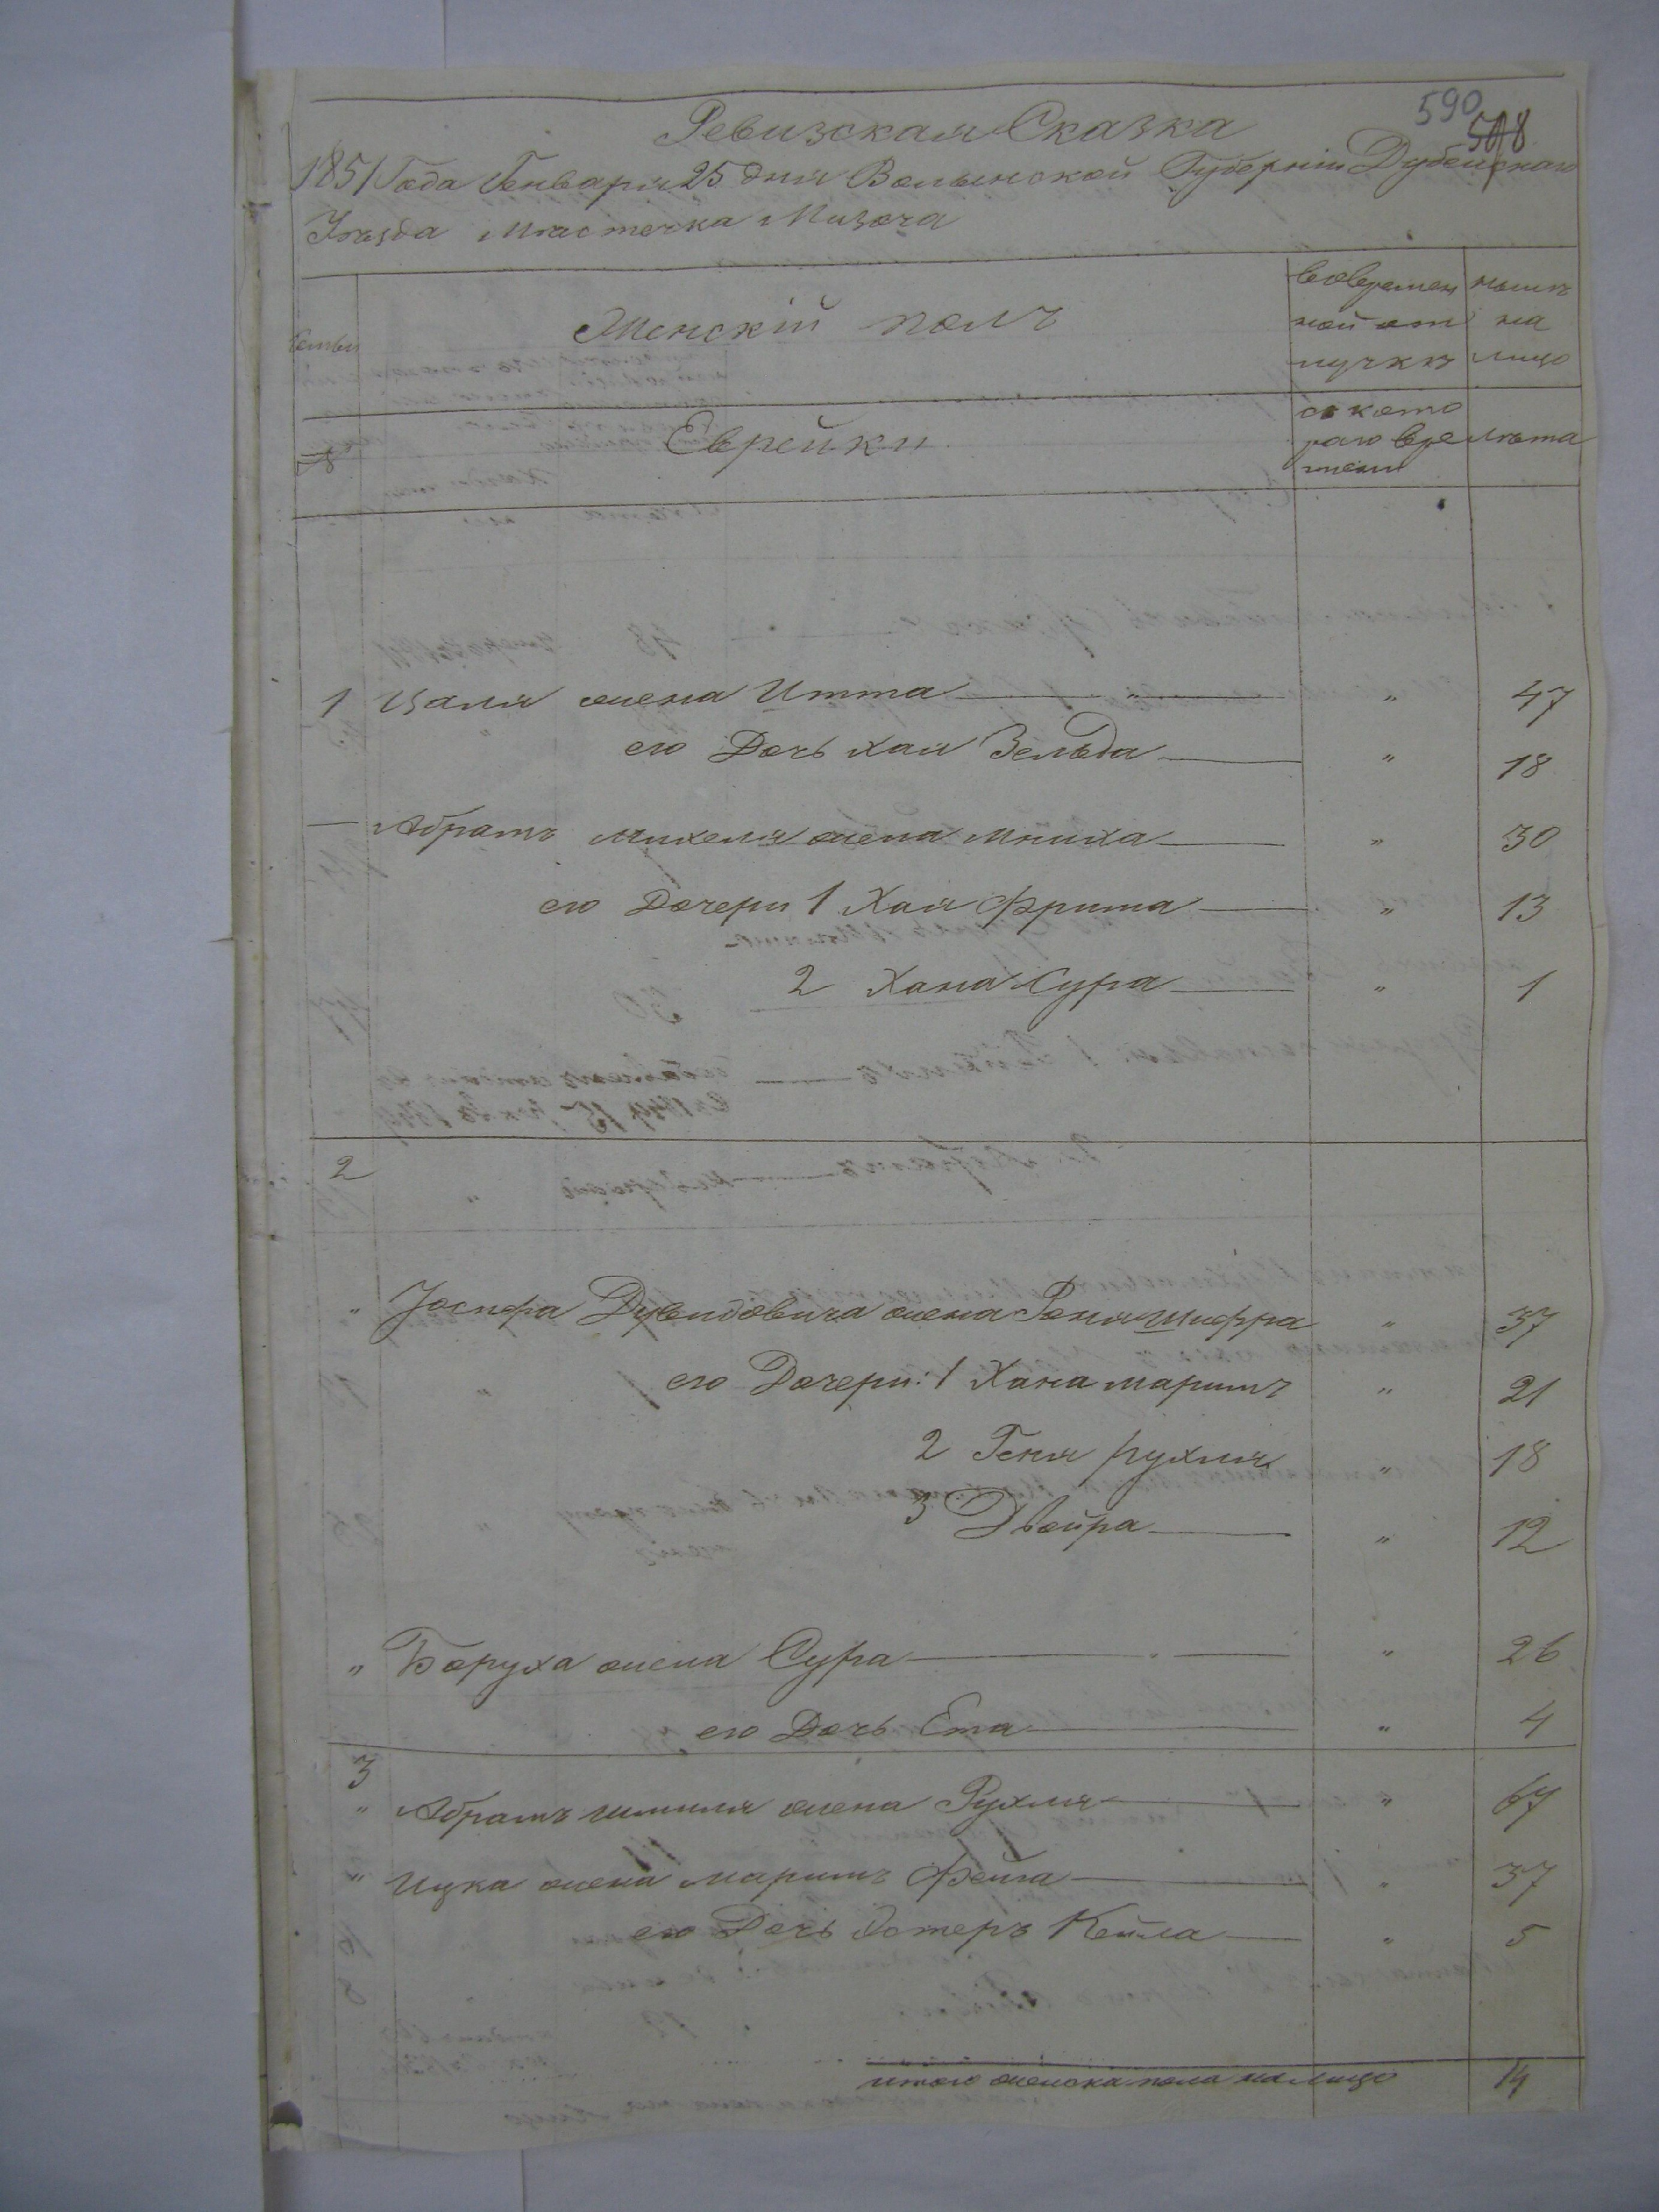 590
508
Ревизская Сказка
1851 Года Генваря 25 дня Волынской Губерніи Дубенскаго
Уѣзда Мѣстечка Мизоча
Семьи
Женскій полъ
Во времен
ной от
лучкѣ
нынѣ
на
лицо
Еврейки
съ кото
раго вре
мени
лѣта
1 Иваля жена Итта " 47
его Дочь Хая Зельда " 18
Абрамъ Михеля жена Мниха " 30
его Дочери 1 Хая Фрима " 13
2 Хана Сура " 1
2
" Іосифа Дувидовича жена Реня Шифра " 37
его Дочери: 1 Хана Маримъ " 21
2 Геня Рухля " 18
3 Двойра " 12
" Боруха жена Сура " 26
его Дочь Ета " 4
3
" Абрамъ Шмиля жена Рухля " 67
" Ицка жена Маримъ Фейга " 37
его Дочь Эстеръ Кейла " 5
итого женска пола на лицо 14